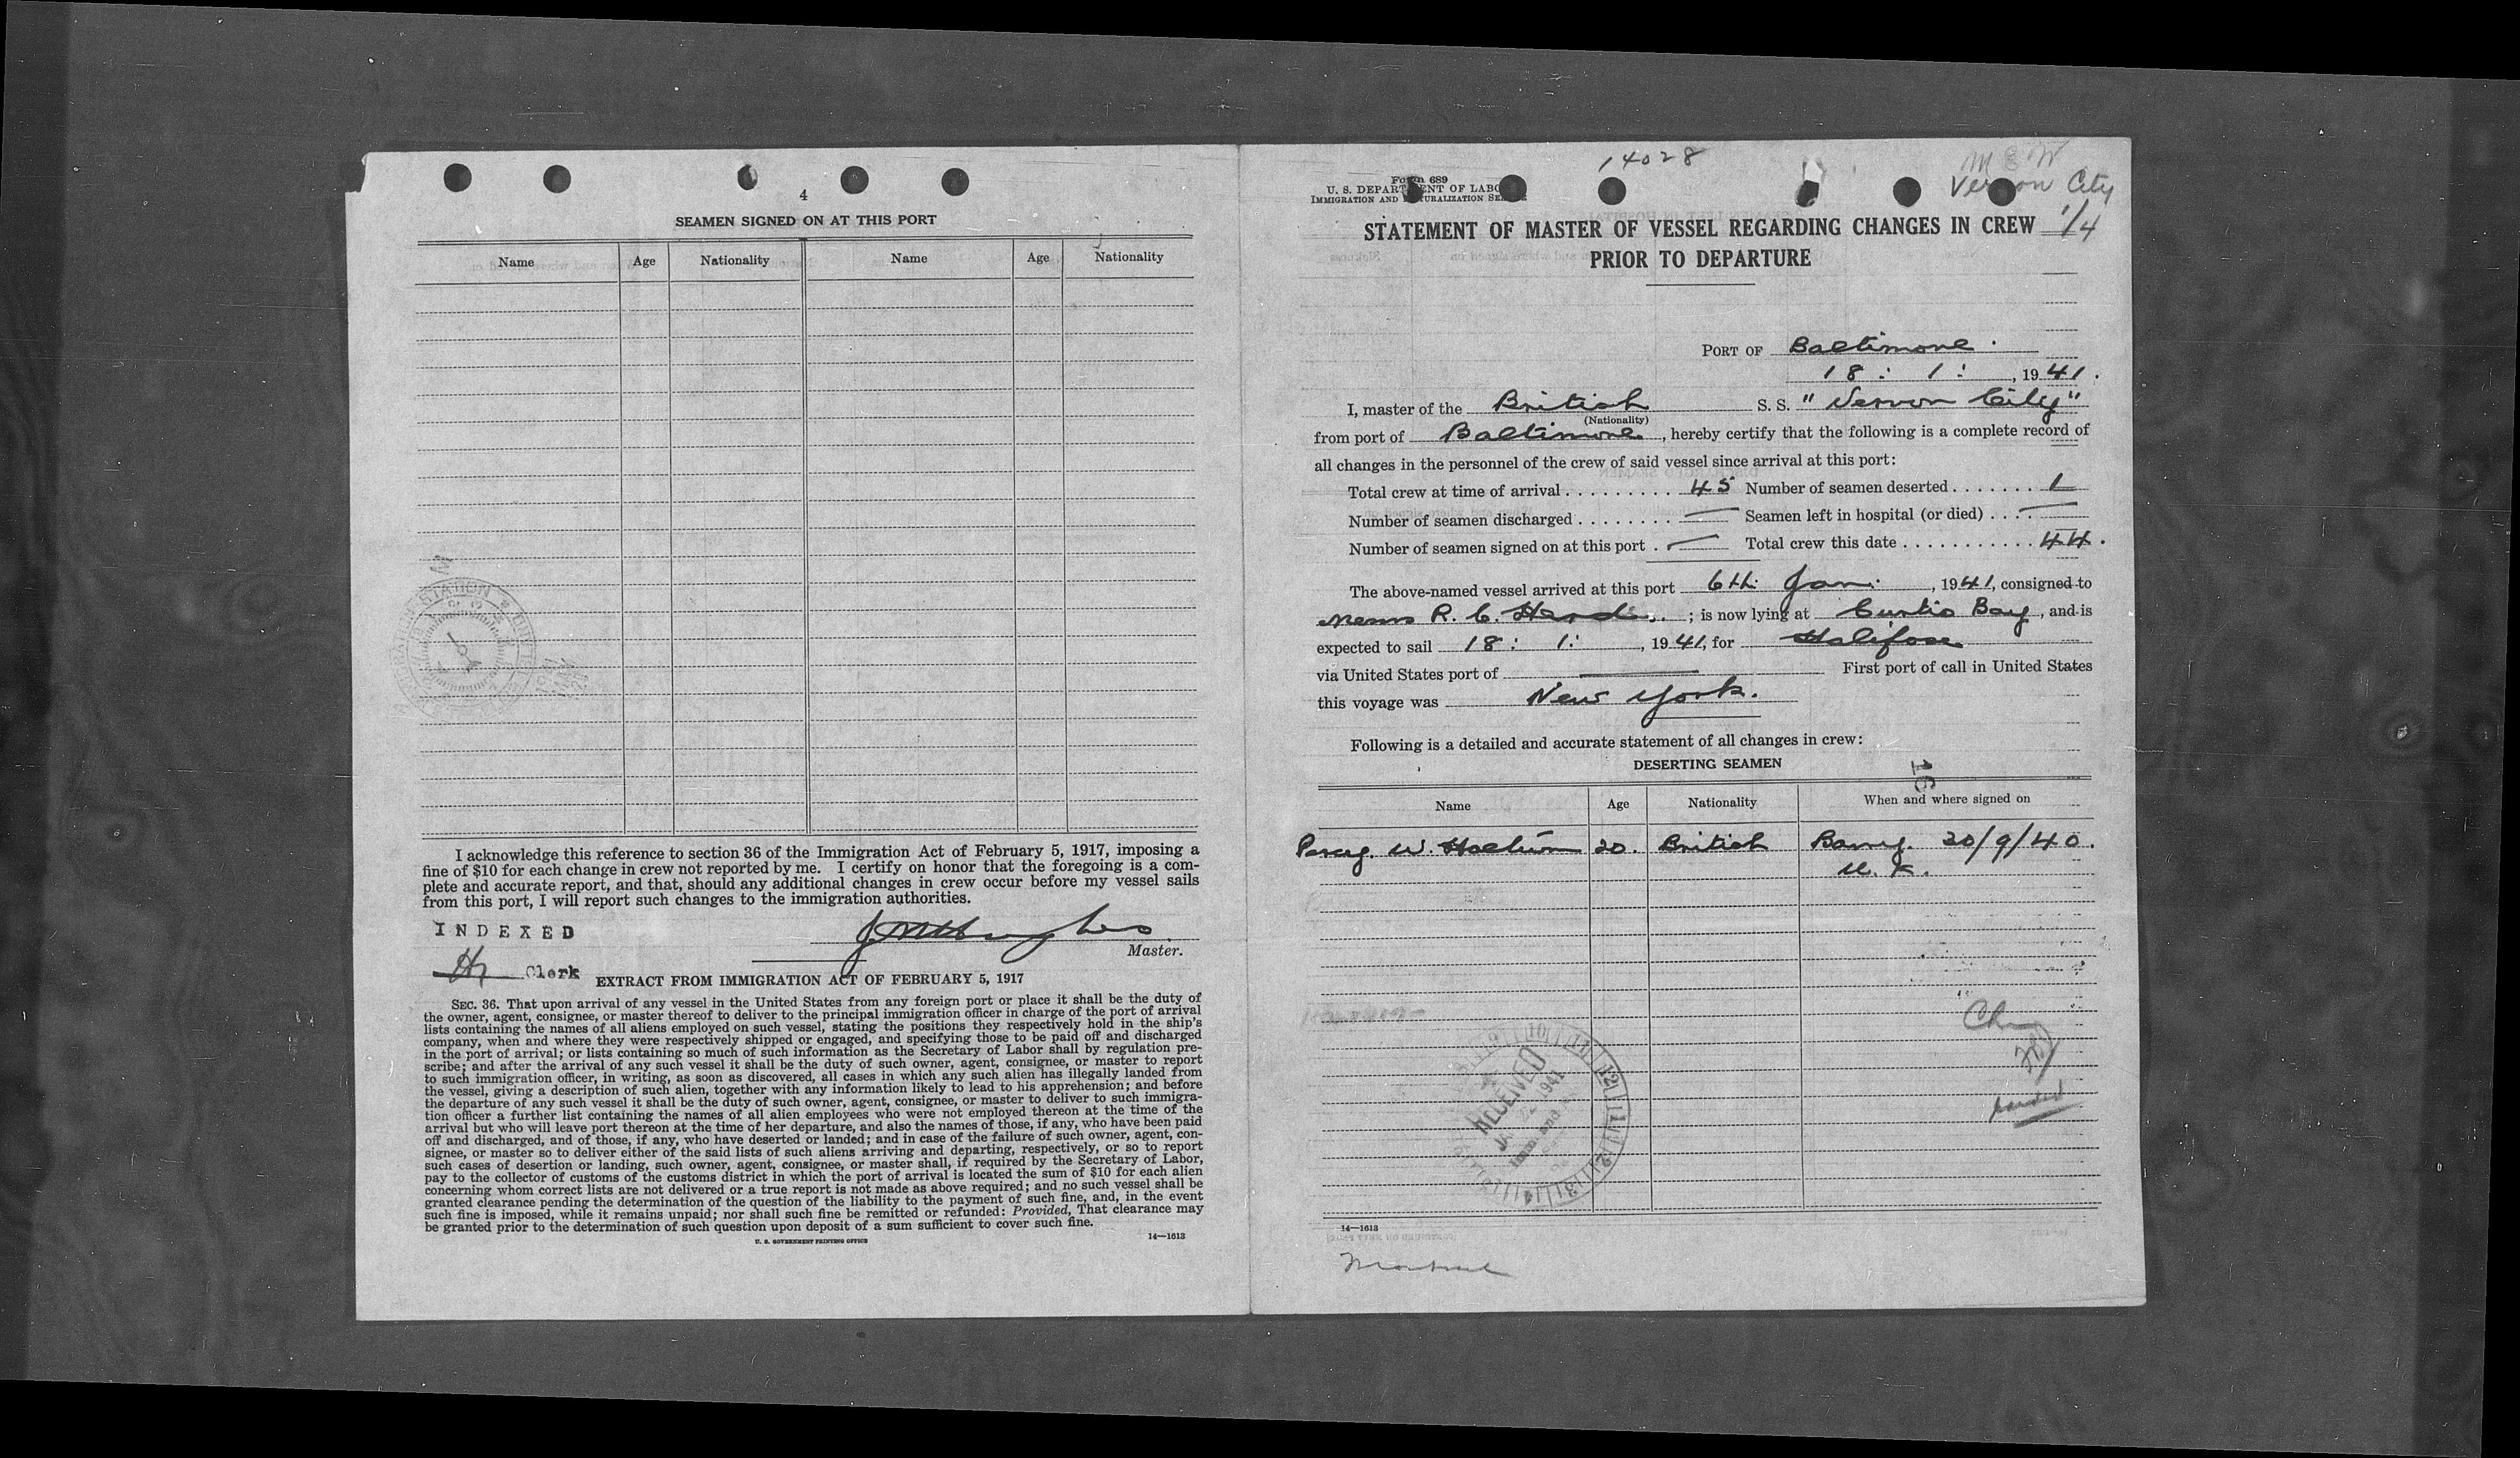 4
SEAMEN SIGNED ON AT THIS PORT
Name Age Nationality Name Age Nationality
I acknowledge this reference to section 36 of the Immigration Act of February 5, 1917, imposing a
fine of $10 for each change in crew not reported by me. I certify on honor that the foregoing is a com-
plete and accurate report, and that, should any additional changes in crew occur before my vessel sails
from this port, I will report such changes to the immigration authorities.
INDEXED
Master.
Clerk
EXTRACT FROM IMMIGRATION ACT OF FEBRUARY 5, 1917
SEC. 36. That upon arrival of any vessel in the United States from any foreign port or place it shall be the duty of
the owner, agent, consignee, or master thereof to deliver to the principal immigration officer in charge of the port of arrival
lists containing the names of all aliens employed on such vessel, stating the positions they respectively hold in the ship's
company, when and where they were respectively shipped or engaged, and specifying those to be paid off and discharged
in the port of arrival; or lists containing so much of such information as the Secretary of Labor shall by regulation pre-
scribe; and after the arrival of any such vessel it shall be the duty of such owner, agent, consignee, or master to report
to such immigration officer, in writing, as soon as discovered, all cases in which any such alien has illegally landed from
the vessel, giving a description of such alien, together with any information likely to lead to his apprehension; and before
the departure of any such vessel it shall be the duty of such owner, agent, consignee, or master to deliver to such immigra-
tion officer a further list containing the names of all alien employees who were not employed thereon at the time of the
arrival but who will leave port thereon at the time of her departure, and also the names of those, if any, who have been paid
off and discharged, and of those, if any, who have deserted or landed; and in case of the failure of such owner, agent, con-
signee, or master so to deliver either of the said lists of such aliens arriving and departing, respectively, or so to report
such cases of desertion or landing, such owner, agent, consignee, or master shall, if required by the Secretary of Labor,
pay to the collector of customs of the customs district in which the port of arrival is located the sum of $10 for each alien
concerning whom correct lists are not delivered or a true report is not made as above required; and no such vessel shall be
granted clearance pending the determination of the question of the liability to the payment of such fine, and, in the event
such fine is imposed, while it remains unpaid; nor shall such fine be remitted or refunded: Provided, That clearance may
be granted prior to the determination of such question upon deposit of a sum sufficient to cover such fine.
U. S. GOVERNMENT PRINTING OFFICE 14—1613
14028
Vernon City
1/4
Form 689
U. S. DEPARTMENT OF LABOR
IMMIGRATION AND NATURALIZATION SERVICE
STATEMENT OF MASTER OF VESSEL REGARDING CHANGES IN CREW
PRIOR TO DEPARTURE
PORT OF Baltimore.
18 : 1 : , 1941.
I, master of the British S. S. "Vernon City"
(Nationality)
from port of Baltimore, hereby certify that the following is a complete record of
all changes in the personnel of the crew of said vessel since arrival at this port:
Total crew at time of arrival 45 Number of seamen deserted 1
Number of seamen discharged — Seamen left in hospital (or died) —
Number of seamen signed on at this port — Total crew this date 44.
The above-named vessel arrived at this port 6th: Jan: , 1941, consigned to
Messrs R. C. Herd ; is now lying at Curtis Bay, and is
expected to sail 18 : 1 : , 1941, for Halifax
via United States port of — First port of call in United States
this voyage was New York.
Following is a detailed and accurate statement of all changes in crew:
DESERTING SEAMEN
16
Name Age Nationality When and where signed on
Percy. W. 20. British Barry. 20/9/40.
U. K.
RECEIVED
1941
14—1613
Montreal